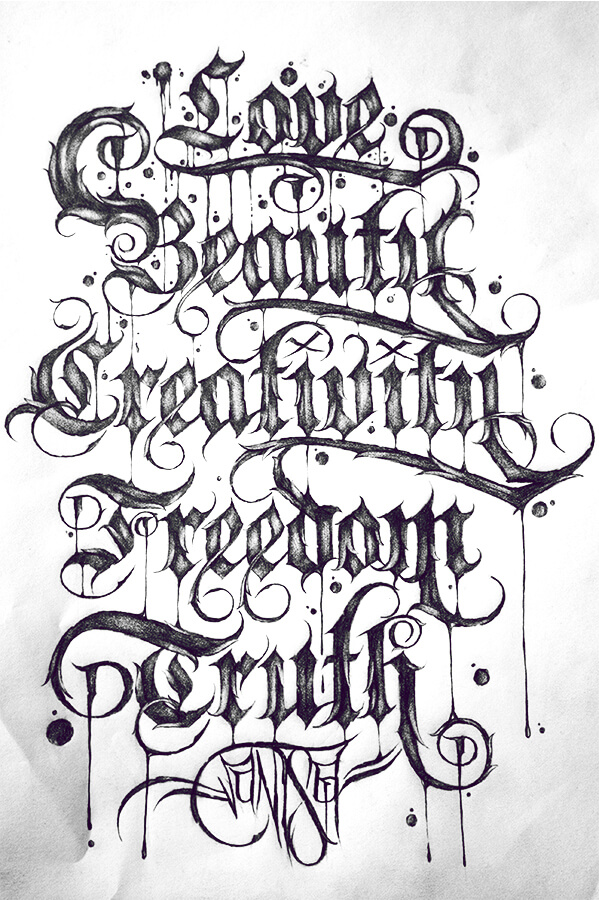 Love
Beauty
Creativity
Freedom
Truth